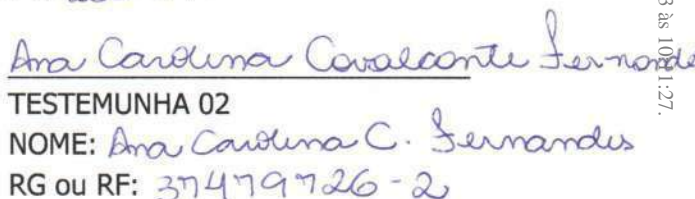 Ana Carolina Cavalcante Fernande
TESTEMUNHA 02
NOME: Ana Carolina C. Fernandes
RG ou RF: 37479726-2
3 às 10:01:27.